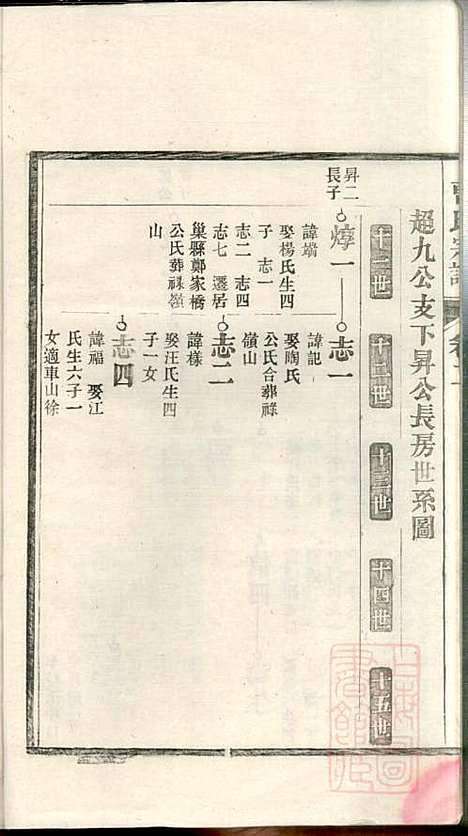 超九公支下昇公長房世系圖
十一世 十二世 十三世 十四世 十五世
昇二
長子
焞一
諱端
娶楊氏生四
子 志一
志二 志四
志七 遷居
巢縣鄭家橋
公氏葬祿嶺
山
志一
諱記
娶陶氏
公氏合葬祿
嶺山
志二
諱樣
娶汪氏生四
子一女
志四
諱福 娶江
氏生六子一
女適車山徐